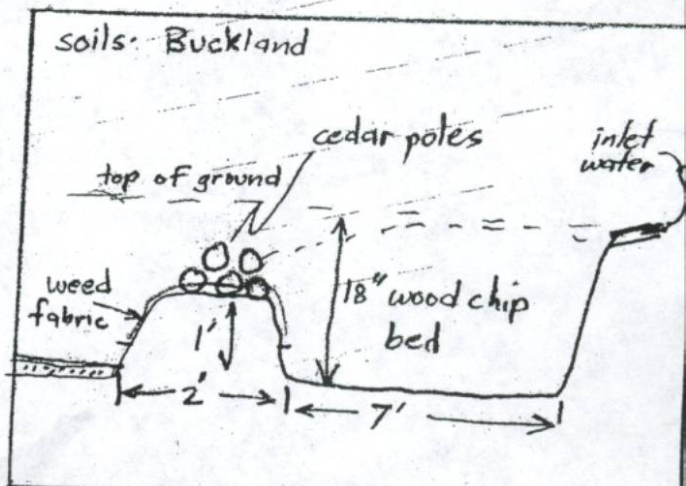 soils: Buckland
cedar poles
inlet
water
top of ground
weed
fabric
18" wood chip
bed
1'
2'
7'